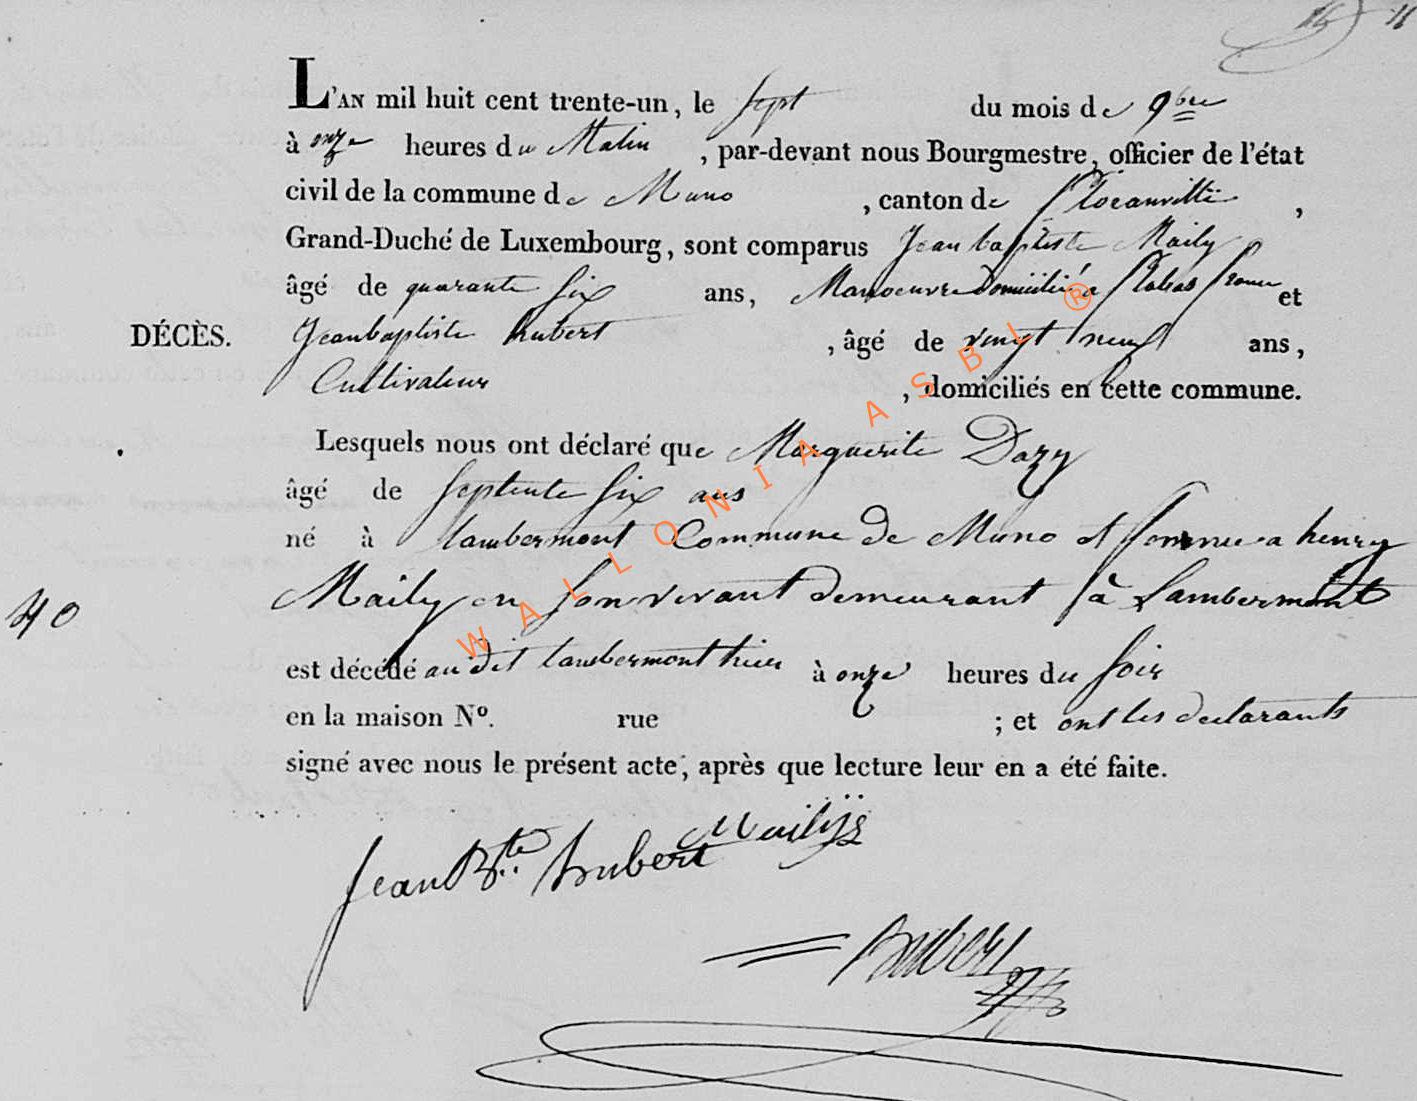 L'AN mil huit cent trente-un, le sept du mois de 9bre
à onze heures du Matin, par-devant nous Bourgmestre, officier de l'état
civil de la commune de Muno, canton de florenville,
Grand-Duché de Luxembourg, sont comparus Jean baptiste Maily
âgé de quarante six ans, Manoeuvre Domicilié a france et
DÉCÈS. Jeanbaptiste hubert, âgé de vingt neuf ans,
Cultivateur, domiciliés en cette commune.
Lesquels nous ont déclaré que Marguerite Dazy
âgé de septente six ans
né à lambermont Commune de Muno et femme a henry
40 Maily en son vivant demeurant à Lambermont
est décédé au dit lambermont hier à onze heures du soir
en la maison No. rue ; et ont les declarants
signé avec nous le présent acte, après que lecture leur en a été faite.
Mailij
Jean Bte hubert
WALLONIA ASBL ®